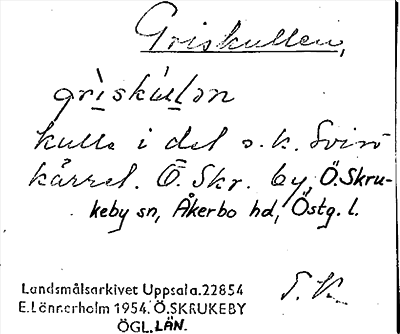 Griskullen,
grìskúlən
kulle i det s.k. Svin
kärret. Ö. Skr. by, Ö.Skru-
keby sn, Åkerbo hd, Östg. l.
Landsmålsarkivet Uppsala.22854
E.Lönnerholm 1954. Ö.SKRUKEBY
ÖGL. LÄN.